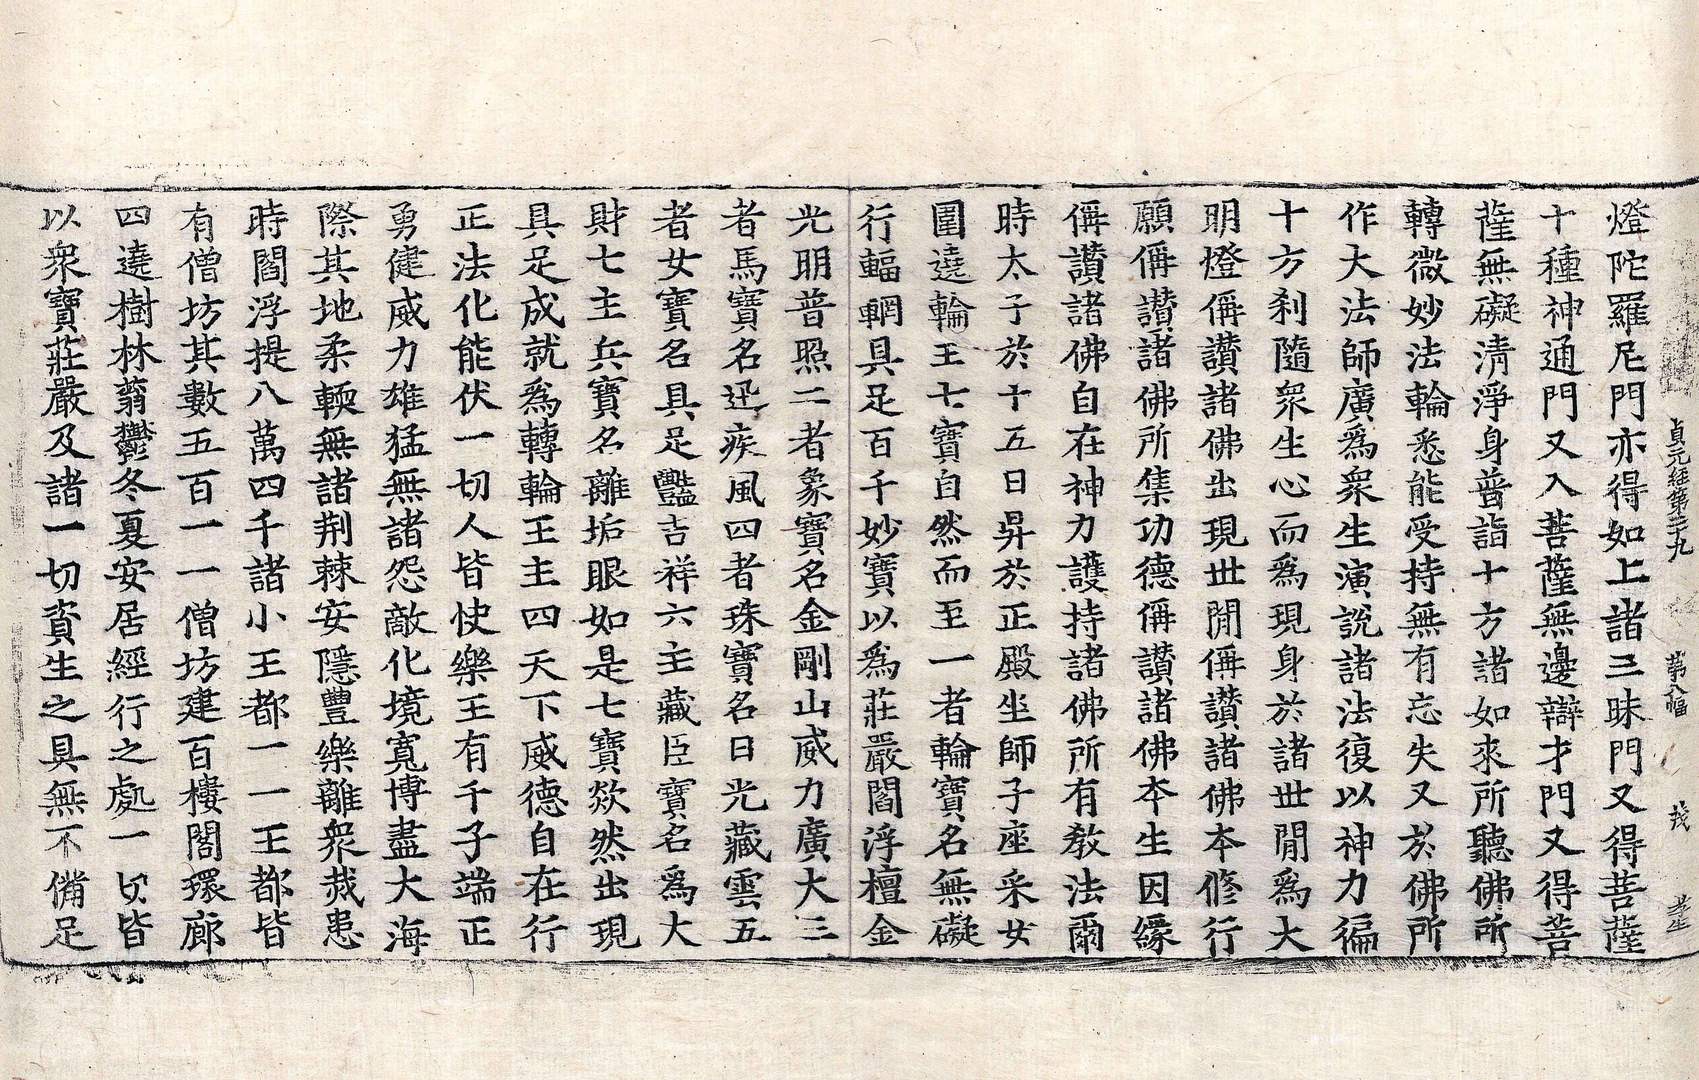 貞元經第二十九　第八幅　茂　
燈陀羅尼門亦得如上諸三昧門又得菩薩
十種神通門又入菩薩無邊辯才門又得菩
薩無礙清淨身普詣十方諸如來所聽佛所
轉微妙法輪悉能受持無有忘失又於佛所
作大法師廣爲衆生演說諸法復以神力徧
十方刹隨衆生心而爲現身於諸世閒爲大
明燈偁讚諸佛出現世閒偁讚諸佛本修行
願偁讚諸佛所集功德偁讚諸佛本生因緣
偁讚諸佛自在神力護持諸佛所有教法爾
時太子於十五日昇於正殿坐師子座采女
圍遶輪王七寶自然而至一者輪寶名無礙
行輻輞具足百千妙寶以爲莊嚴閻浮檀金
光明普照二者象寶名金剛山威力廣大三
者馬寶名迅疾風四者珠寶名日光藏雲五
者女寶名具足豔吉祥六主藏臣寶名爲大
財七主兵寶名離垢眼如是七寶欻然出現
具足成就爲轉輪王主四天下威德自在行
正法化能伏一切人皆快樂王有千子端正
勇健威力雄猛無諸怨敵化境寬博盡大海
際其地柔輭無諸荆棘安隱豐樂離衆烖患
時閻浮提八萬四千諸小王都一一王都皆
有僧坊其數五百一一僧坊建百樓閣環廊
四遶樹林蓊鬱冬夏安居經行之處一切皆
以衆寶莊嚴及諸一切資生之具無不備足